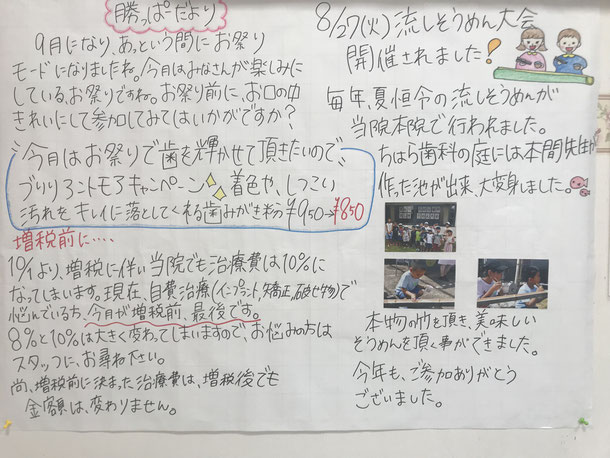 勝っぱーだより
9月になり、あっという間にお祭り
モードになりましたね。今月はみなさんが楽しみに
している、お祭りですね。お祭り前に、お口の中
きれいにして参加してみてはいかがですか？
今月はお祭りで歯を輝かせて頂きたいので、
ブリリアントモアキャンペーン 着色や、しつこい
汚れをキレイに落としてくれる歯みがき粉 ¥950→¥850
増税前に‥‥
10/1より、増税に伴い当院でも治療費は10%に
なってしまいます。現在、自費治療(インプラント、矯正、被せ物)で
悩んでいる方、今月が増税前、最後です。
8%と10%は大きく変わってしまいますので、お悩みの方は
スタッフに、お尋ね下さい。
尚、増税前に決まった治療費は、増税後でも
金額は、変わりません。
8/27(火) 流しそうめん大会
開催されました！
毎年、夏恒令の流しそうめんが
当院本院で行われました。
ちはら歯科の庭には本間先生が
作った池が出来、大変身しました。
本物の竹を頂き、美味しい
そうめんを頂く事ができました。
今年も、ご参加ありがとう
ございました。